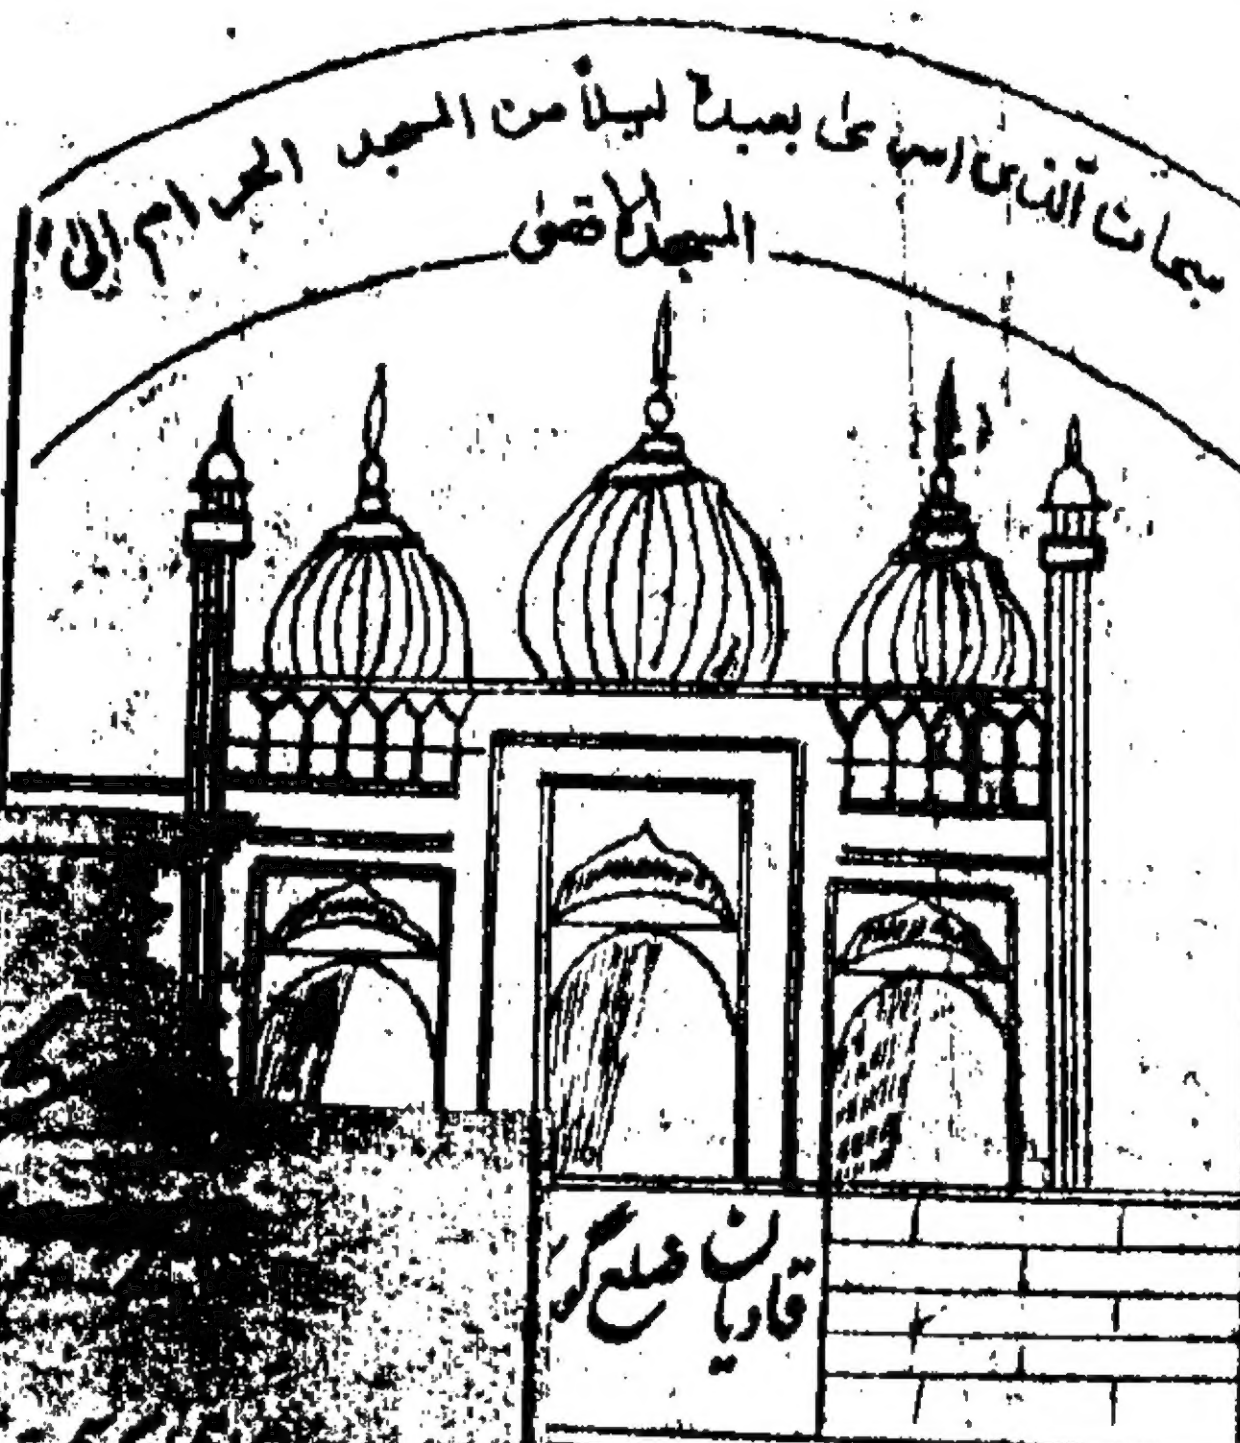 سبحان الذی اسری بعبدہ لیلاً من المسجد الحرام إلی
المسجد الاقصی
قادیان ضلع